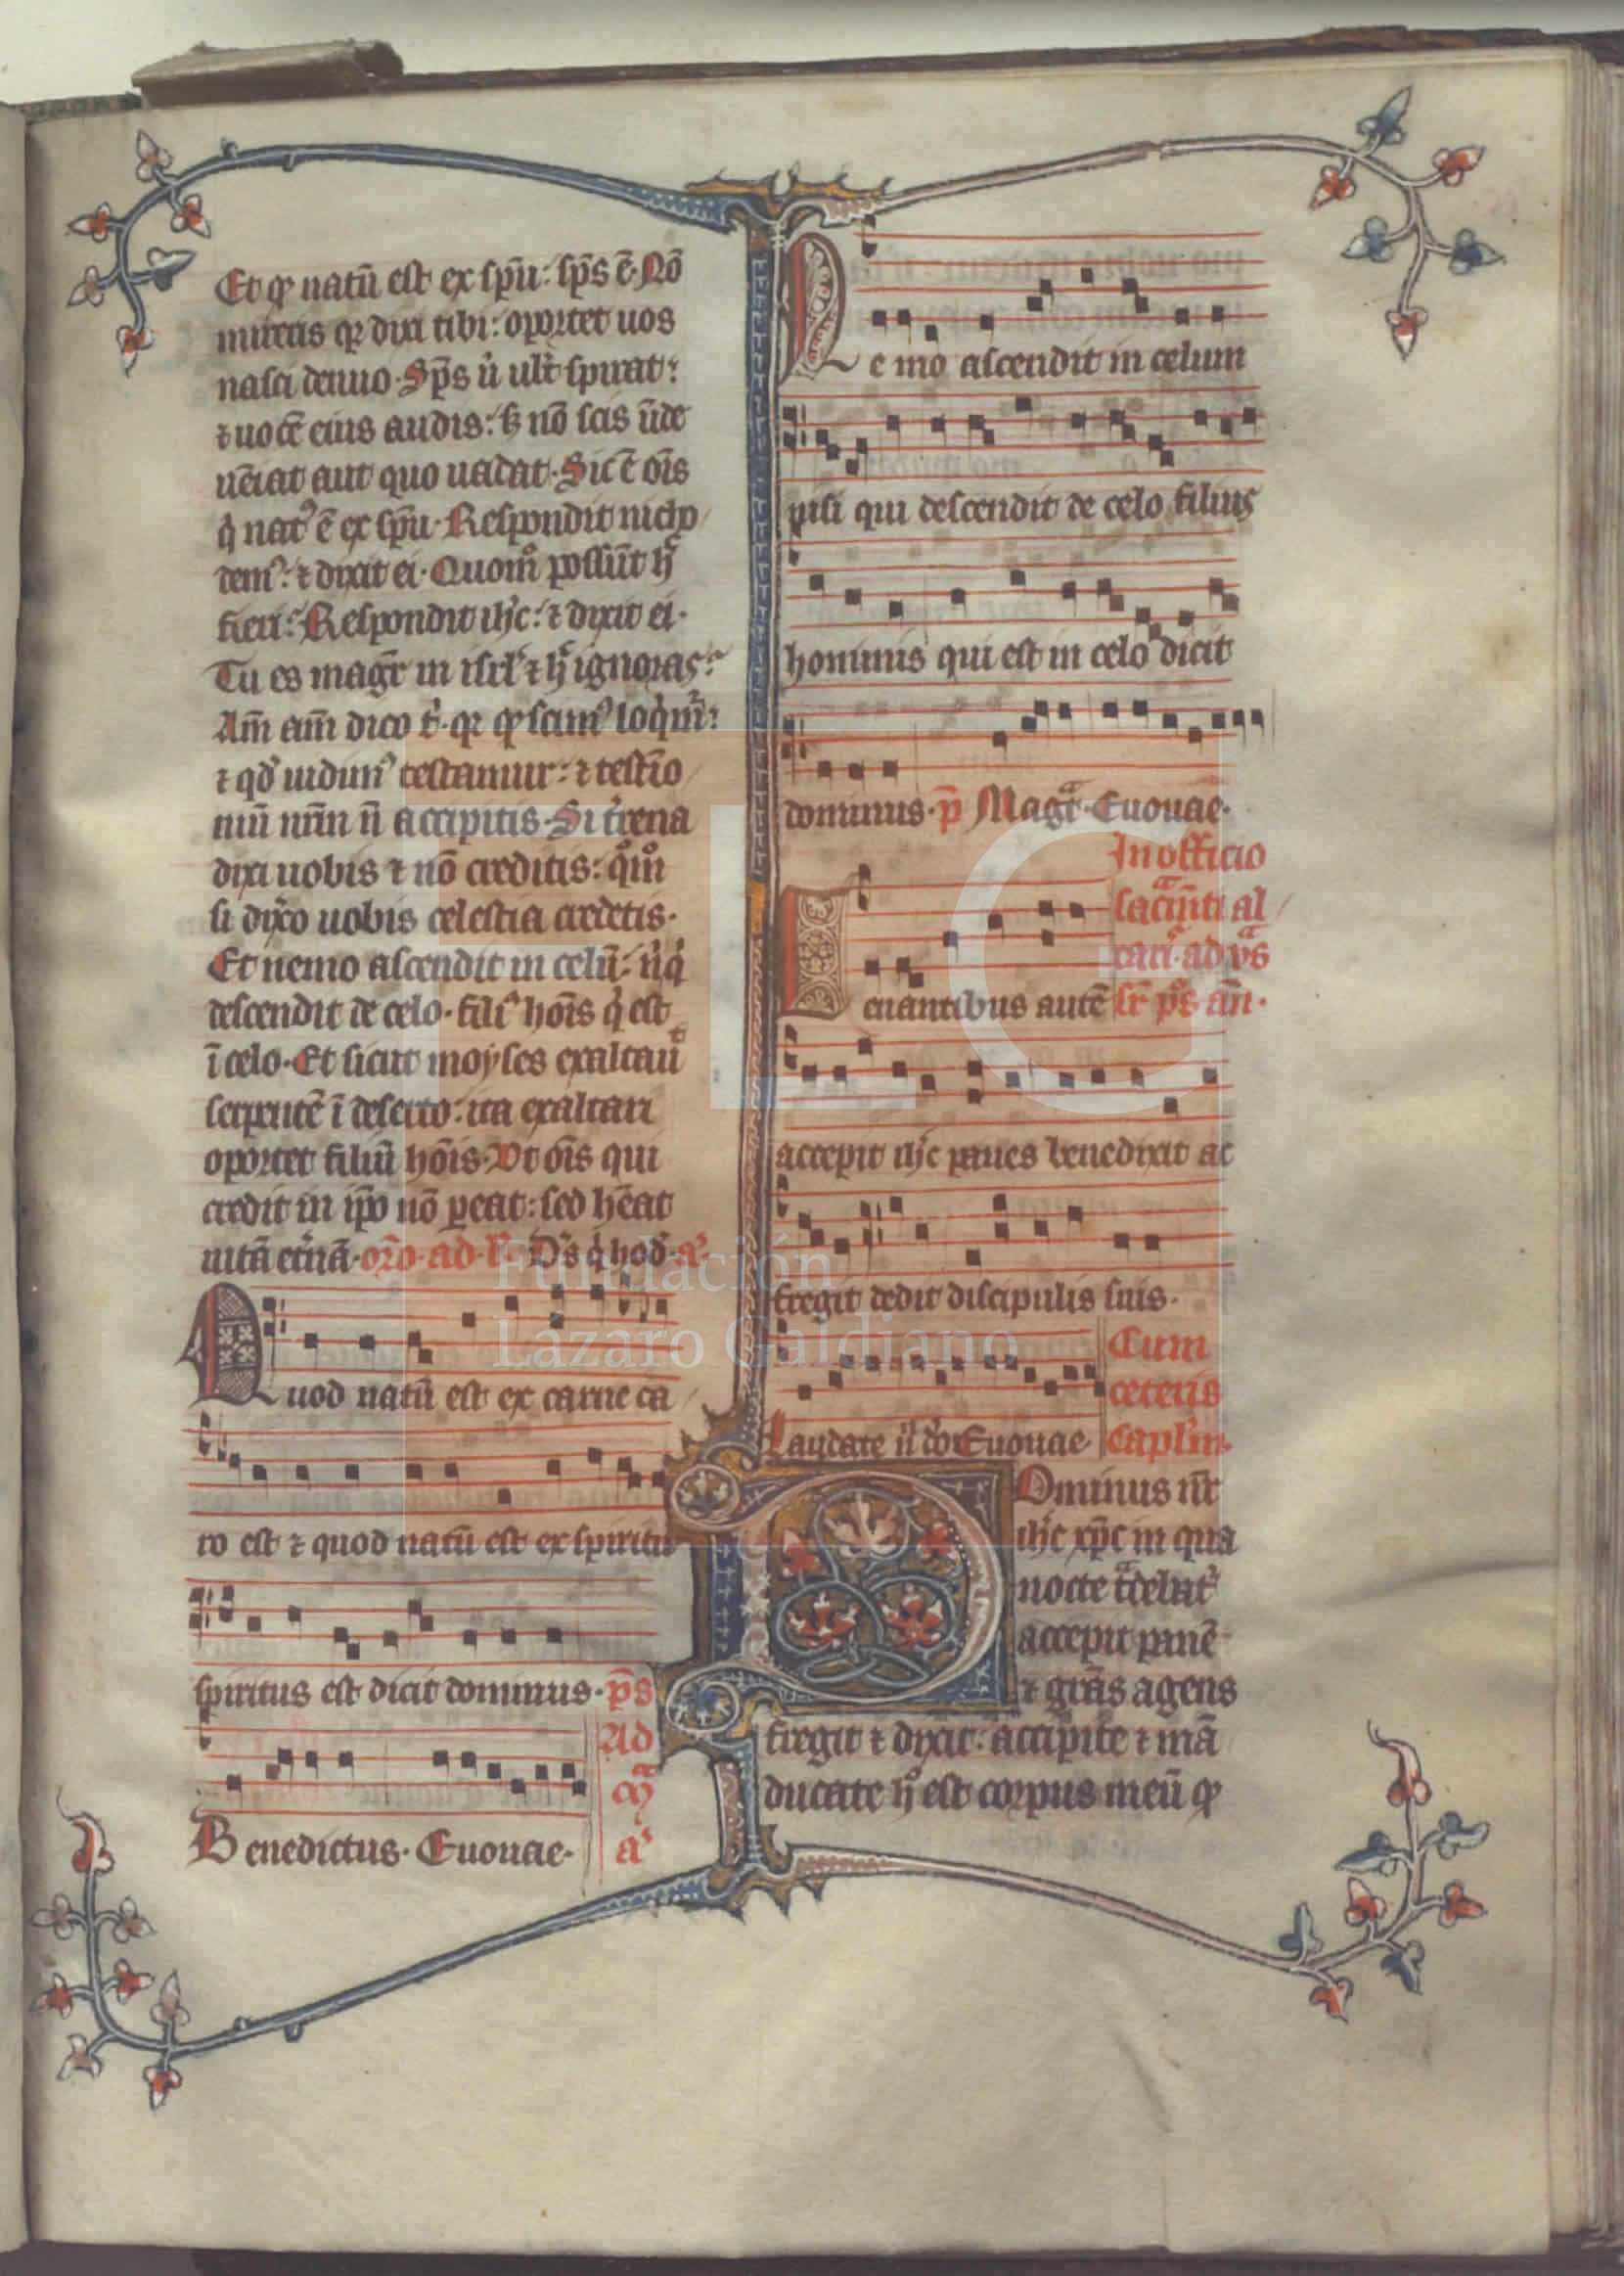 Et qđ natū est ex spū: sp̄s ē. Nō
mireris qr dixi tibi: oportet uos
nasci denuo. Sp̄s ů ulť spirat:
⁊ uocē eius audis: s; nō scis ūde
uēiat aut quo uadat. Sic ē oīs
q̇ natꝰ ē ex sp̄u. Respondit nicho
demꝰ: ⁊ dixit ei. Quom̊ possūt h̄
fieri? Respondit ih̄c: ⁊ dixit ei.
Tu es magr̄ in isrl̓ ⁊ h̄ ignoras?
Am̄ am̄ dico t̓. qr qđ scimꝰ loq̇mr̓:
⁊ qđ uidimꝰ testamur: ⁊ testīo
niū nr̄m n̄ accipitis. Si t̓rena
dixi uobis ⁊ nō creditis: q̊m̊
si dix̓o uobis celestia credetis.
Et nemo ascendit in celū: n̓ q̇
descendit de celo. filiꝰ hoīs q̇ est
ī celo. Et sicut moyses exaltauᵗ
serpentē ī deserto: ita exaltari
oportet filiū hōis. Vt oīs qui
credit in ip̄o nō ꝑeat: sed hēat
uitā et̓nā. or̄o. ad. l̓. D̓s q̇ hod̓. aͣ.
Quod natū est ex carne ca
ro est ⁊ quod natū est ex spiritu
spiritus est dicit dominus. p̄s
Benedictus. Euouae.
Ad
aͣ
Nemo ascendit in celum
nisi qui descendit de celo filius
hominis qui est in celo dicit
dominus. p̄ Magͣt. Euouae.
In officio
sacͣm̄ti al
taři. ad vͣs
Cenantibus autē sr̄ p̓s an̄.
accepit ih̄c panes benedixit ac
fregit dedit discipulis suis.
Cum
ceteris
Laudate Euouae capl̓m.
Dominus nr̄
ih̄c xp̄c in qua
nocte tͣdebatᷣ
accepit panē
⁊ grās agens
fregit ⁊ dixit: accipite ⁊ mā
ducate h̊ est corpus meū qđ
Fundación
Lázaro Galdiano